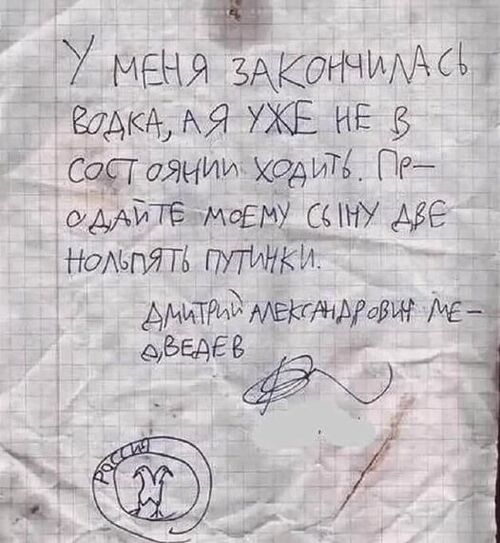 У МЕНЯ ЗАКОНЧИЛАСЬ
ВОДКА, А Я УЖЕ НЕ В
СОСТОЯНИИ ХОДИТЬ. ПР–
ОДАЙТЕ МОЕМУ СЫНУ ДВЕ
НОЛЬПЯТЬ ПУТИНКИ.
ДМИТРИЙ АЛЕКСАНДРОВИЧ МЕ–
ДВЕДЕВ
РОССИЯ